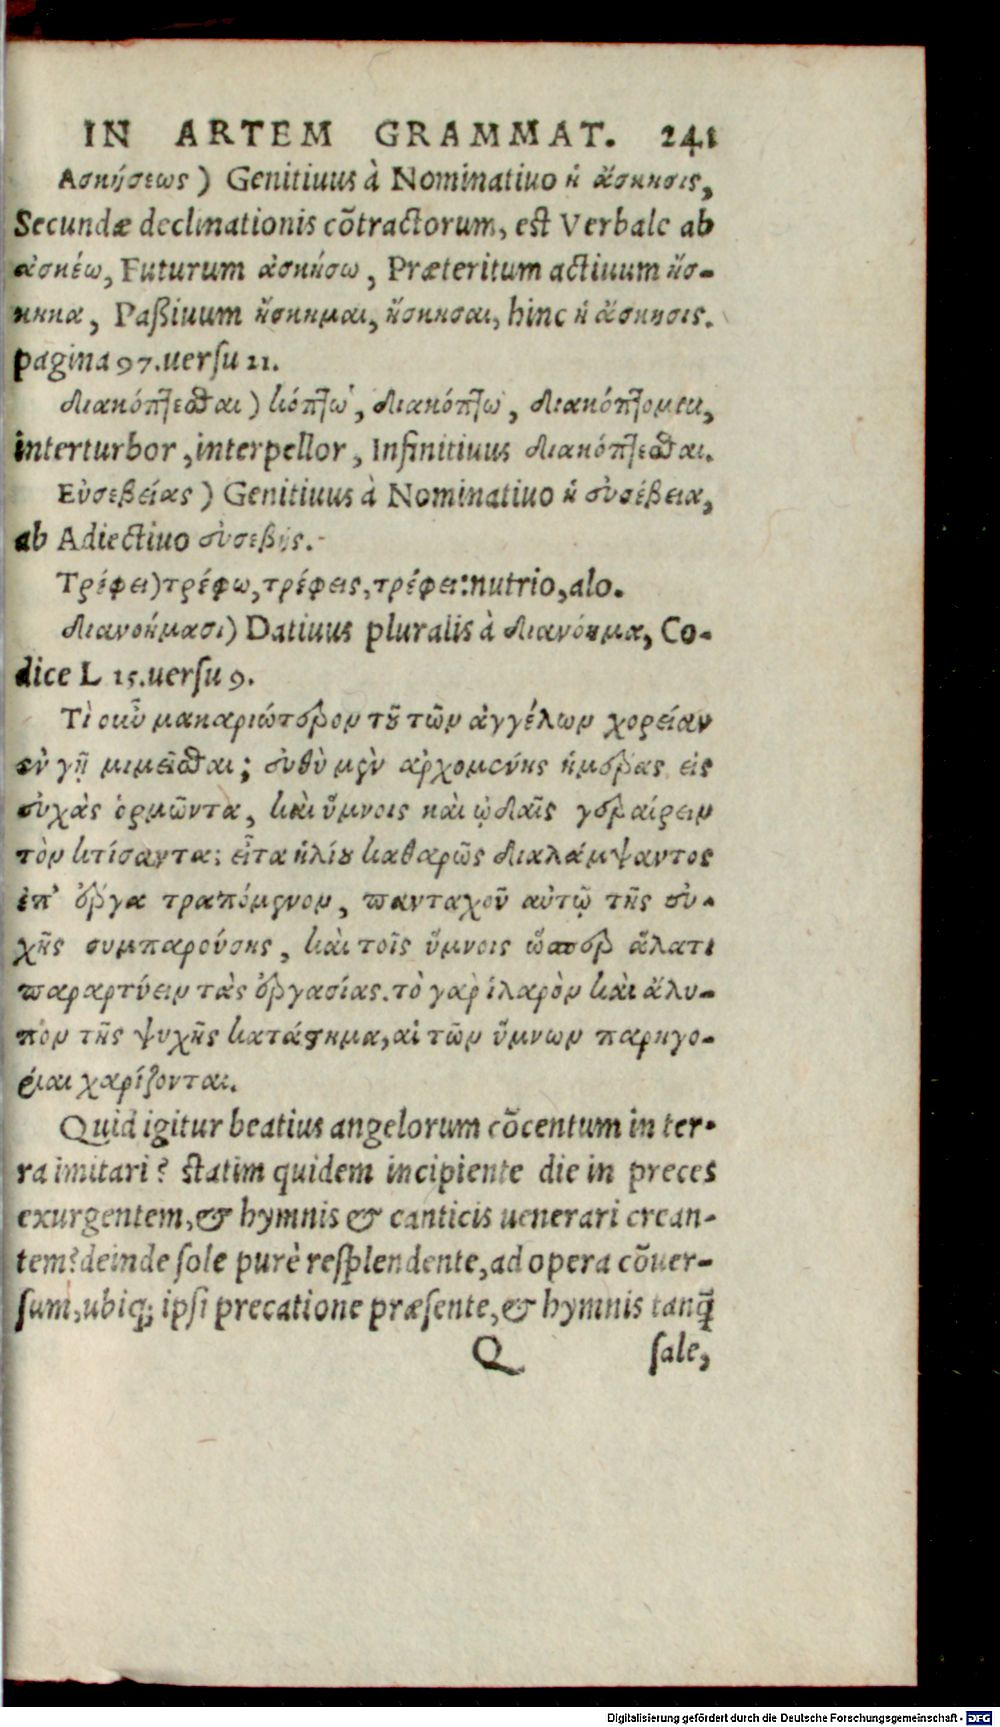 IN ARTEM GRAMMAT. 241
Ασκήσεως) Genitiuus à Nominatiuo ἡ ἄσκησις,
Secundæ declinationis cõtractorum, est Verbale ab
ἀσκέω, Futurum ἀσκήσω, Præteritum actiuum ἤσ-
κηκα, Paßiuum ἤσκημαι, ἤσκησαι, hinc ἡ ἄσκησις.
pagina 97. uersu 21.
διακόπτεσθαι) κόπτω, διακόπτω, διακόπτομαι,
interturbor, interpellor, Infinitiuus διακόπτεσθαι.
Εὐσεβείας) Genitiuus à Nominatiuo ἡ εὐσέβεια,
ab Adiectiuo εὐσεβής.
Τρέφει) τρέφω, τρέφεις, τρέφει: nutrio, alo.
διανοήμασι) Datiuus pluralis à διανόημα, Co-
dice L 15. uersu 9.
Τὶ οὖν μακαριώτερον τοῦ τῶν ἀγγέλων χορείαν
ἐν γῇ μιμεῖσθαι; εὐθὺ μὲν ἀρχομένης ἡμέρας εἰς
εὐχὰς ὁρμῶντα, καὶ ὕμνοις καὶ ᾠδαῖς γεραίρειν
τὸν κτίσαντα; εἶτα ἡλίου καθαρῶς διαλάμψαντος
ἐπ' ἔργα τραπόμενον, πανταχοῦ αὐτῷ τῆς εὐ-
χῆς συμπαρούσης, καὶ τοῖς ὕμνοις ὥσπερ ἅλατι
παραρτύειν τὰς ἐργασίας. τὸ γὰρ ἱλαρὸν καὶ ἄλυ-
πον τῆς ψυχῆς κατάστημα, αἱ τῶν ὕμνων παρηγο-
ρίαι χαρίζονται.
Quid igitur beatius angelorum cõcentum in ter-
ra imitari? statim quidem incipiente die in preces
exurgentem, & hymnis & canticis uenerari crean-
tem? deinde sole purè resplendente, ad opera cõuer-
sum, ubiq; ipsi precatione præsente, & hymnis tanq̃
Q sale,
Digitalisierung gefördert durch die Deutsche Forschungsgemeinschaft - DFG